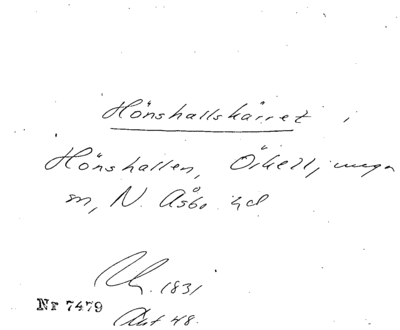 Hönshallskärret i
Hönshallen, Örkelljunga
sn, N. Åsbo hd
Rk. 1831
Nr 7479
Akt 48.